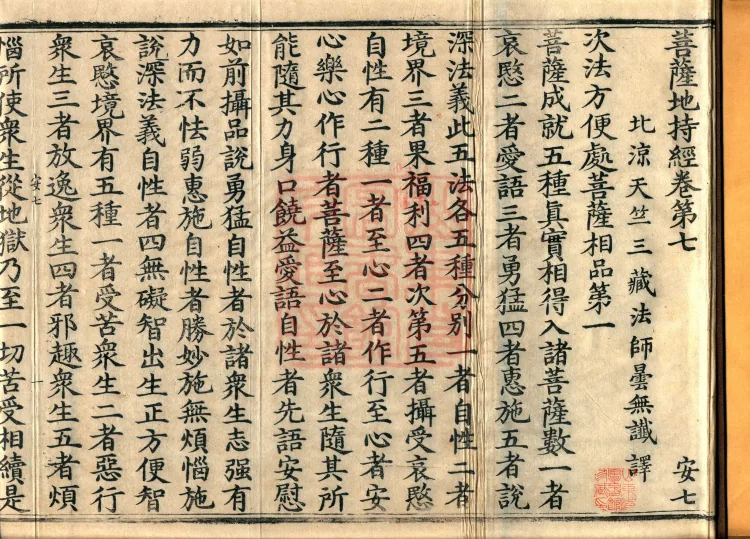 菩薩地持經卷第七
安七
北涼天竺三藏法師曇無讖譯
次法方便處菩薩相品第一
菩薩成就五種真實相得入諸菩薩數一者
哀愍二者愛語三者勇猛四者惠施五者說
深法義此五法各五種分別一者自性二者
境界三者果福利四者次第五者攝受哀愍
自性有二種一者至心二者作行至心者安
心樂心作行者菩薩至心於諸衆生隨其所
能隨其力身口饒益愛語自性者先語安慰
如前攝品說勇猛自性者於諸衆生志强有
力而不怯弱惠施自性者勝妙施無煩惱施
說深法義自性者四無礙智出生正方便智
哀愍境界有五種一者受苦衆生二者惡行
衆生三者放逸衆生四者邪趣衆生五者煩
安七
一
惱所使衆生從地獄乃至一切苦受相續是